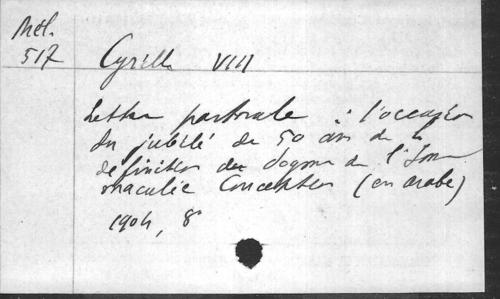 Mél.
517
Cyrille VIII
Lettre pastorale à l'occasion
du jubilé de 50 ans de la
définition du dogme de l'Im
maculée Conception (en arabe)
1904, 8°